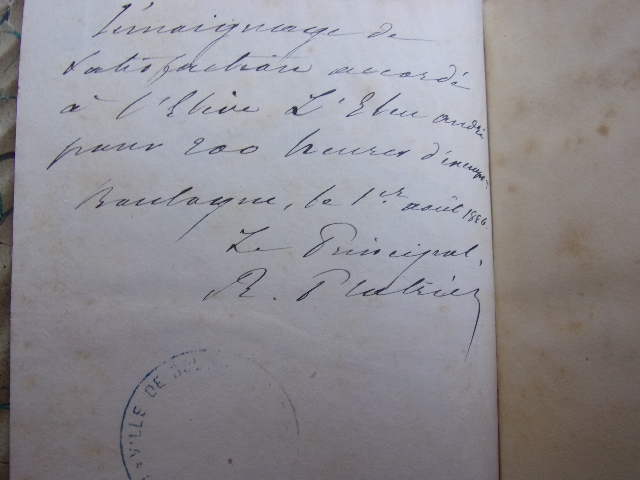 Témoignage de
satisfaction accordé
à l'Elève L' andré
pour 200 heures
Boulogne, le 1er août 1886
Le Principal.
R.
VILLE DE